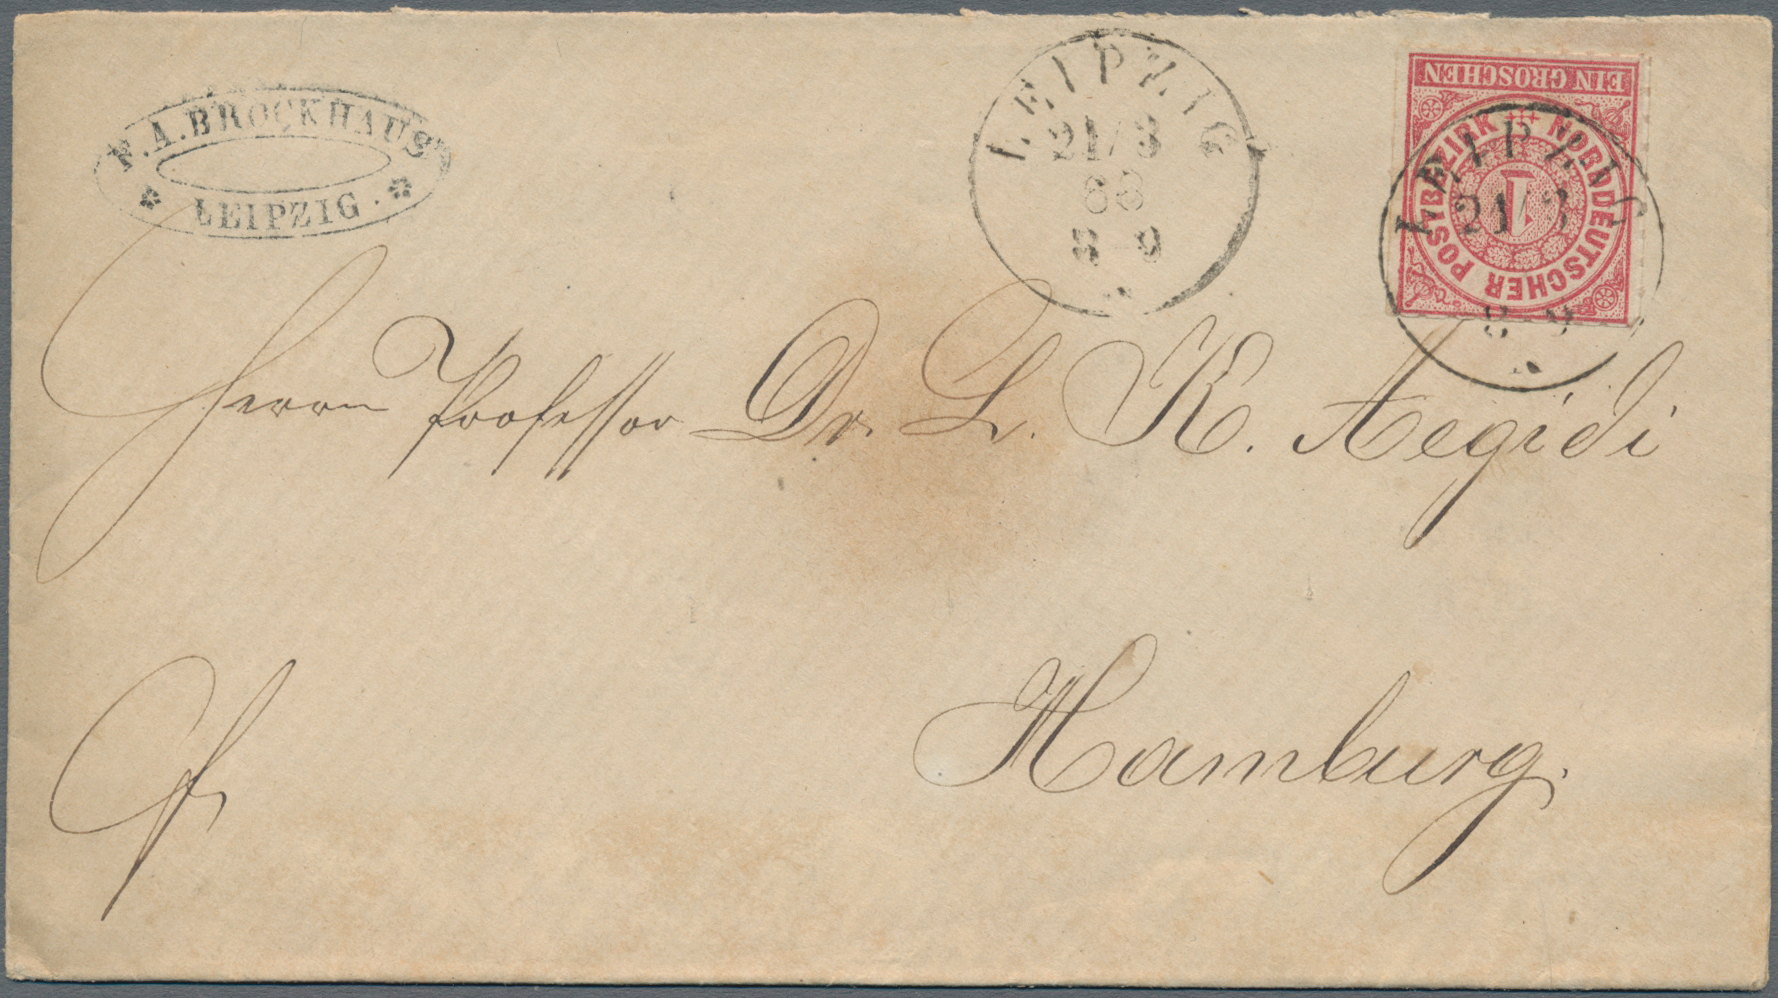 F. A. BROCKHAUS
LEIPZIG.
LEIPZIG
21/3
68
8–9
EIN GROSCHEN
NORDDEUTSCHER POSTBEZIRK
1
LEIPZIG
21/3
8–9
Herrn Professor Dr. L. K. Aegidi
Hamburg.